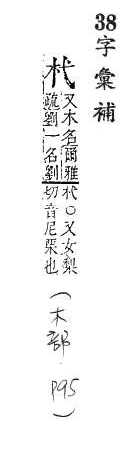 38 字彙補
杙
又木名爾雅
疏劉一名劉
杙○又女梨
切音尼也
(木部 P95)